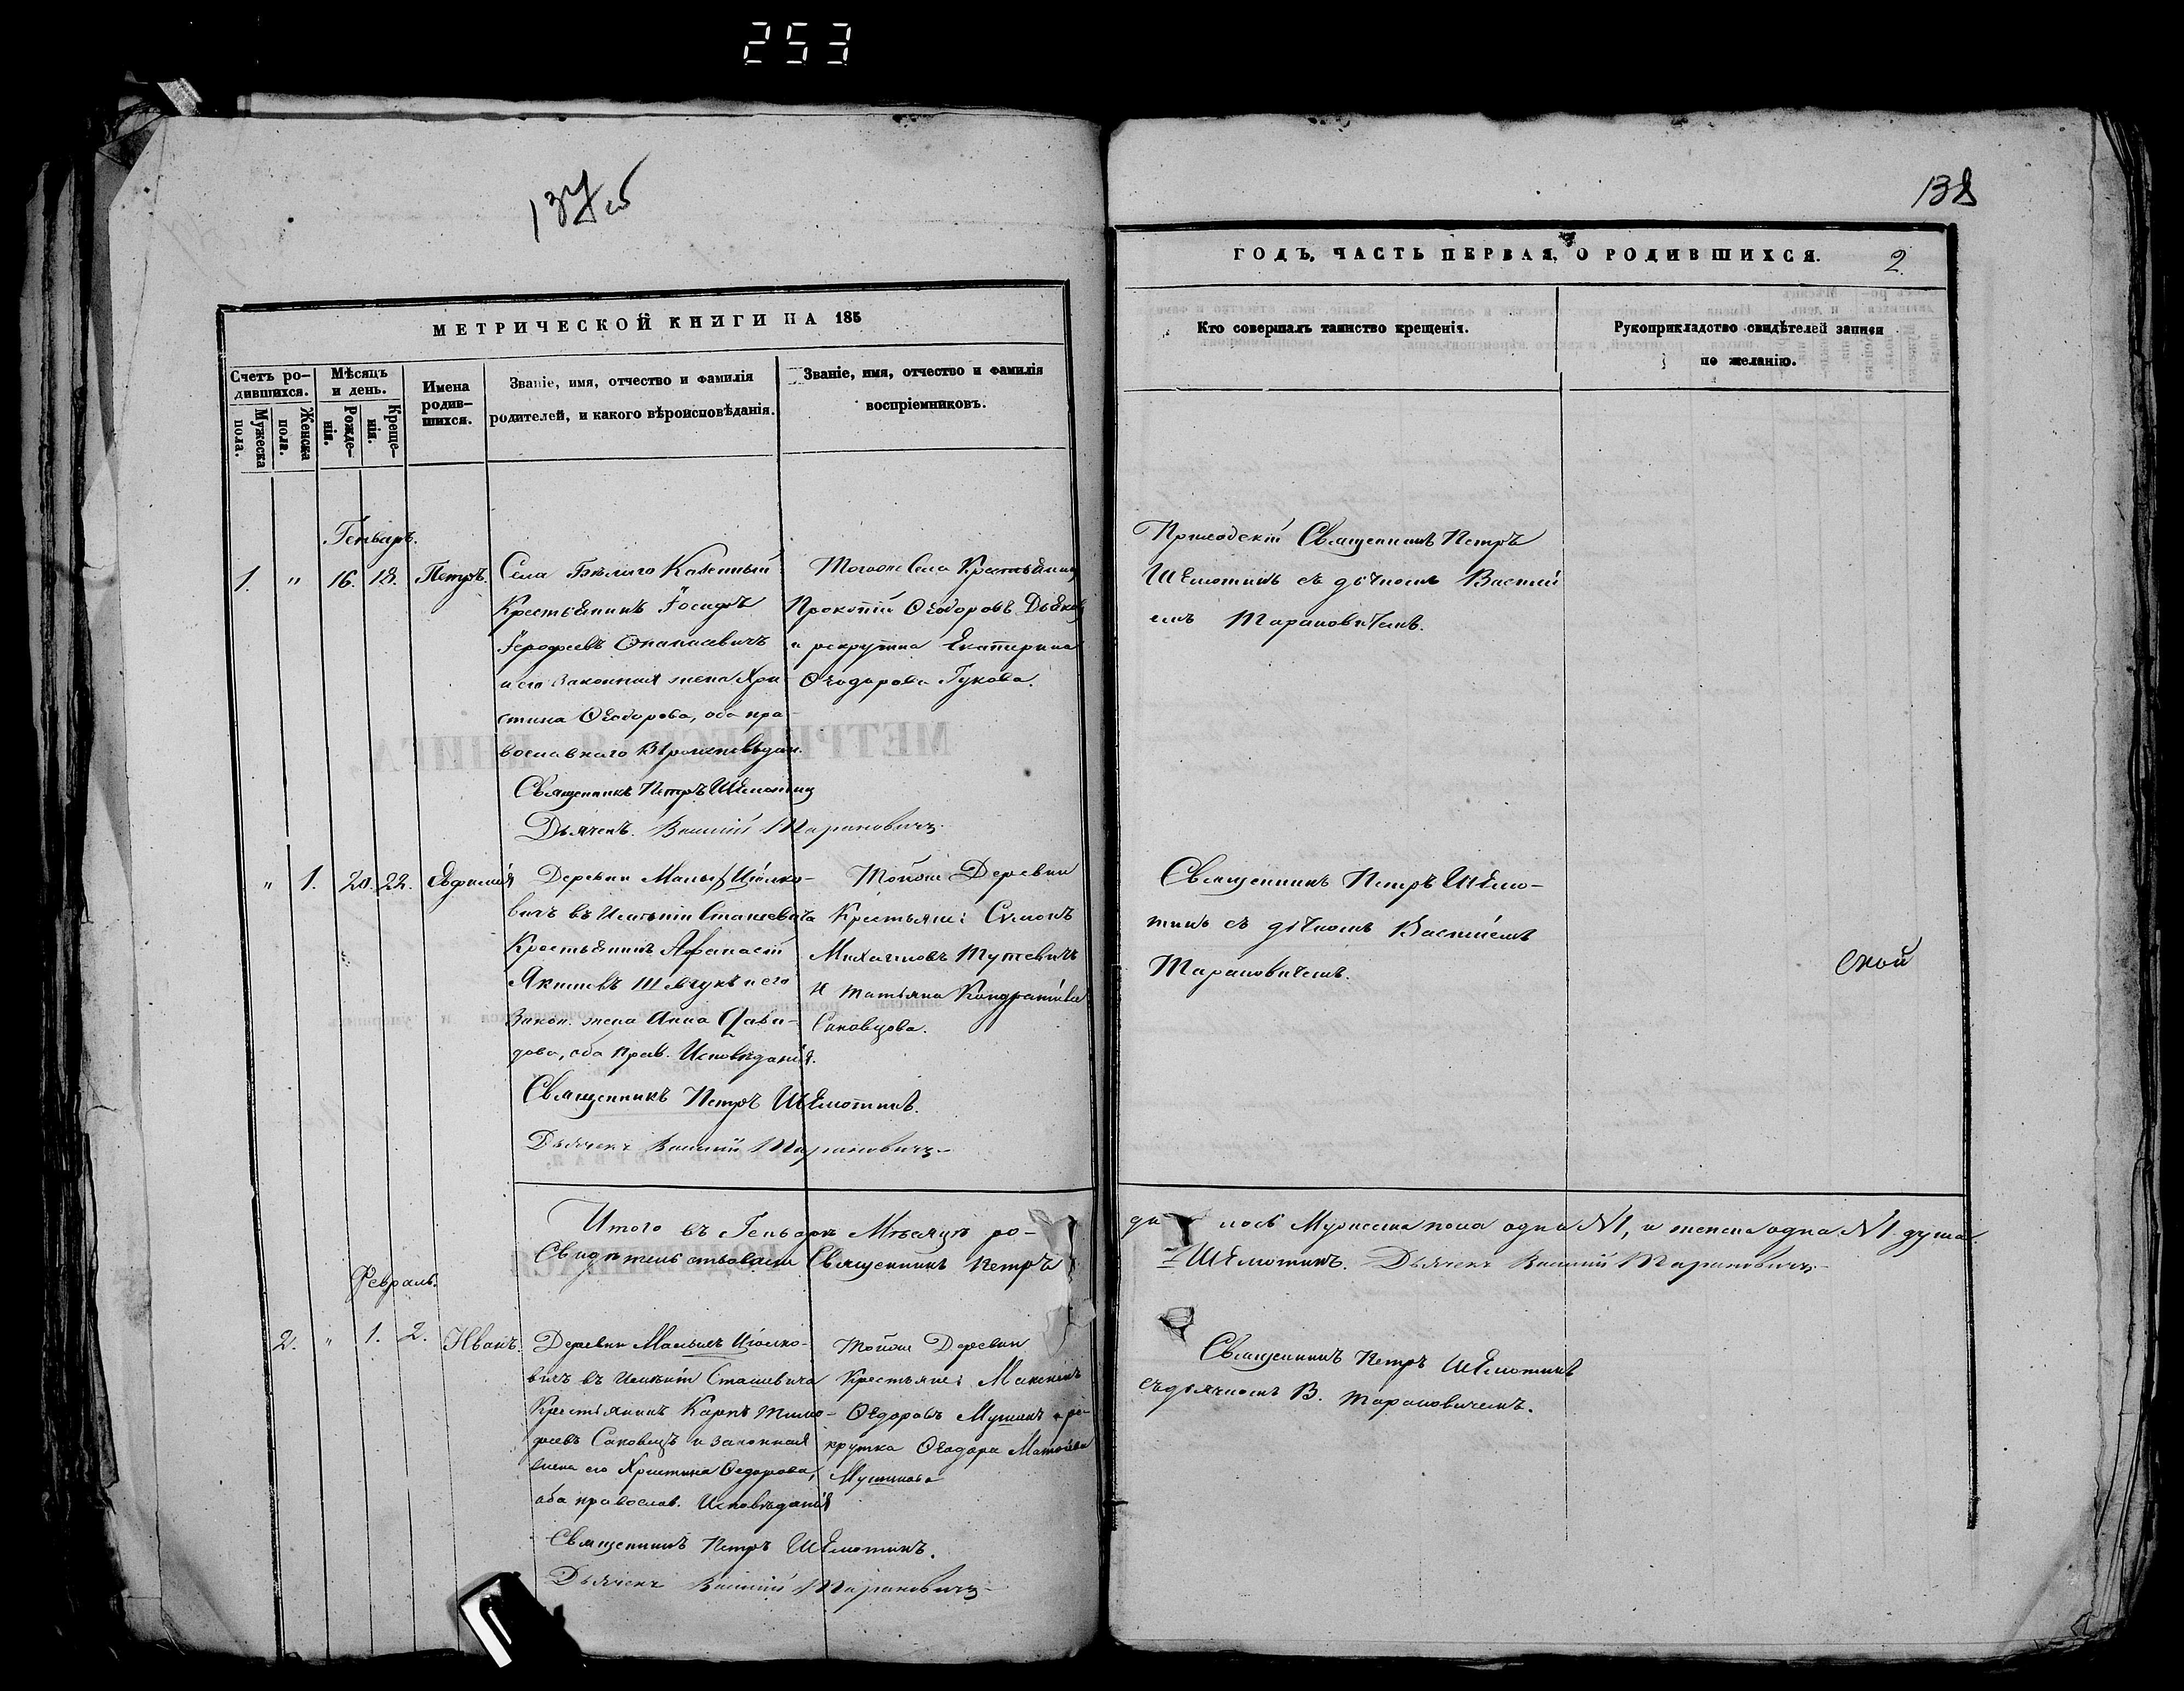 253
137об
138
МЕТРИЧЕСКОЙ КНИГИ НА 185
ГОДЪ, ЧАСТЬ ПЕРВАЯ, О РОДИВШИХСЯ.
2.
Счетъ ро-
дившихся.
Мужеска
пола.
Женска
пола.
Мѣсяцъ
и день.
Рожде-
нія.
Креще-
нія.
Имена
родив-
шихся.
Званіе, имя, отчество и фамилія
родителей, и какого вѣроисповѣданія.
Званіе, имя, отчество и фамилія
воспріемниковъ.
Кто совершалъ таинство крещенія.
Рукоприкладство свидѣтелей записи
по желанію.
Генварь.
1. " 16. 18. Петръ.
Села Бѣлаго Казенный
Крестьянинъ Іосифъ
Ерофеевъ Опанасевичъ
и его законная жена Хри
стина Ѳеодорова, оба пра-
вославнаго Вѣроисповѣдан.
Священникъ Петръ
Дьячекъ Василій Тарановичъ
Тогоже Села Крестьянинъ
Прокопій Ѳеодоровъ
и рекрутка Екатерина
Ѳеодорова Гукова.
Приходскій Священникъ Петръ
съ дьячкомъ Василі
емъ Тарановичемъ.
" 1. 20. 22.
Деревни Малыхъ
вичъ въ Имѣніи Сташевича
Крестьянинъ Афанасій
Якимовъ Шевчукъ и его
Закон. жена Анна Дави-
дова, оба прав. Исповѣданія.
Священникъ Петръ
Дьячекъ Василій Тарановичъ
Тойже Деревни
Крестьяне: Симонъ
Михаиловъ
и Татьяна Кондратіева
Саковцова.
Священникъ Петръ
съ дьячкомъ Василіемъ
Тарановичемъ.
ской
Итого въ Генварѣ Мѣсяцѣ ро-
Свидѣтельствовали Священникъ Петръ
лось Мужеска пола одна №1, и женска одна №1 душа.
Дьячекъ Василій Тарановичъ
Февраль.
2. " 1. 2. Иванъ.
Деревни Малыхъ
вичъ въ Имѣніи Сташевича
Крестьянинъ Карпъ Тимо-
феевъ Саковецъ и законная
жена его Христина Ѳедорова,
оба православ. Исповѣданія
Священникъ Петръ
Дьячекъ Василій Тарановичъ
Тойже Деревни
Крестьяне: Максимъ
Ѳедоровъ и ре-
крутка Ѳеодора
Священникъ Петръ
съ дьячкомъ В. Тарановичемъ.